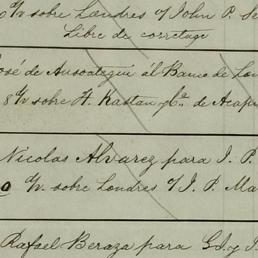 d/v sobre Londres y/ John P. Se
Libre de corretage
José de Ansoategui él Banco de Lon
8 d/v sobre H. Kastan y Ca. de Acapu
Nicolas Alvarez para J. P.
0 d/v sobre Londres y/ J. P. Ma
Rafael Beraza para G. J. y J.